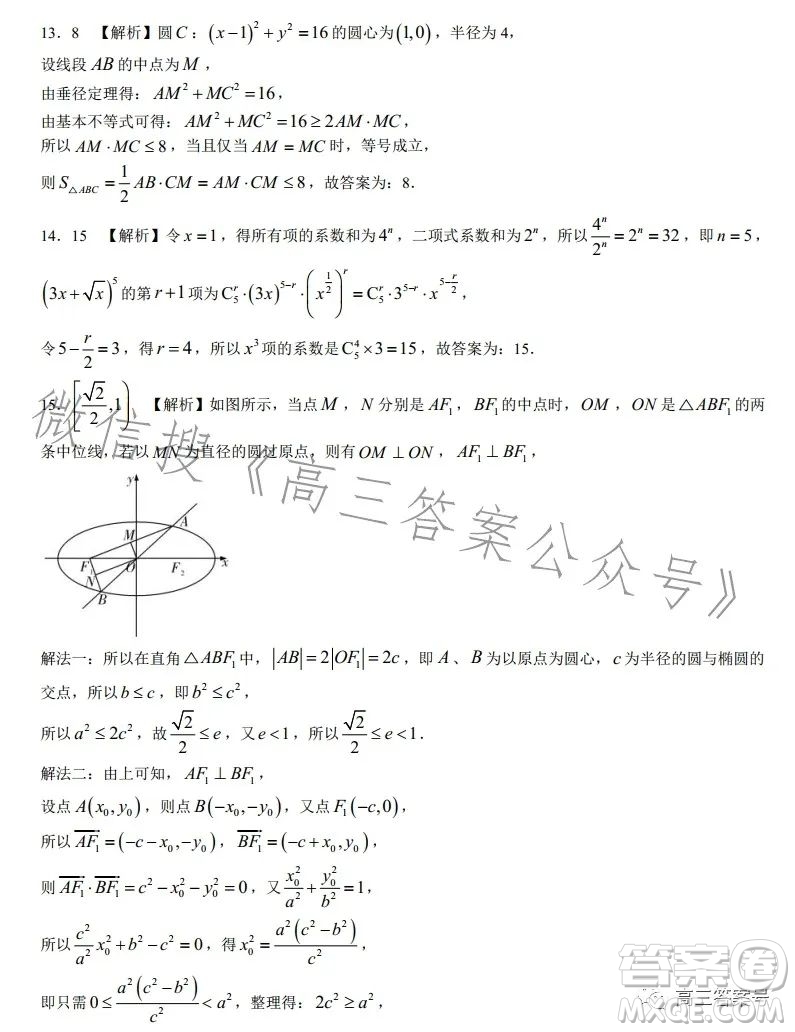 13．8 【解析】圆 C：(x−1)²+y²=16 的圆心为(1,0)，半径为 4，
设线段 AB 的中点为 M，
由垂径定理得：AM²+MC²=16，
由基本不等式可得：AM²+MC²=16≥2AM·MC，
所以 AM·MC≤8，当且仅当 AM=MC 时，等号成立，
则 S△ABC=1/2 AB·CM=AM·CM≤8，故答案为：8．
14．15 【解析】令 x=1，得所有项的系数和为 4ⁿ，二项式系数和为 2ⁿ，所以 4ⁿ/2ⁿ=2ⁿ=32，即 n=5，
(3x+√x)⁵ 的第 r+1 项为 C₅ʳ·(3x)^(5−r)·(x^(1/2))^r=C₅ʳ·3^(5−r)·x^(5−r/2)，
令 5−r/2=3，得 r=4，所以 x³ 项的系数是 C₅⁴×3=15，故答案为：15．
15．[√2/2,1) 【解析】如图所示，当点 M，N 分别是 AF₁，BF₁ 的中点时，OM，ON 是△ABF₁ 的两
条中位线，若以 MN 为直径的圆过原点，则有 OM⊥ON，AF₁⊥BF₁，
y
A
M
F₁ O F₂ x
N
B
解法一：所以在直角△ABF₁ 中，|AB|=2|OF₁|=2c，即 A、B 为以原点为圆心，c 为半径的圆与椭圆的
交点，所以 b≤c，即 b²≤c²，
所以 a²≤2c²，故 √2/2≤e，又 e<1，所以 √2/2≤e<1．
解法二：由上可知，AF₁⊥BF₁，
设点 A(x₀,y₀)，则点 B(−x₀,−y₀)，又点 F₁(−c,0)，
所以 AF₁→=(−c−x₀,−y₀)，BF₁→=(−c+x₀,y₀)，
则 AF₁→·BF₁→=c²−x₀²−y₀²=0，又 x₀²/a²+y₀²/b²=1，
所以 c²/a² x₀²+b²−c²=0，得 x₀²=a²(c²−b²)/c²，
即只需 0≤a²(c²−b²)/c²<a²，整理得：2c²≥a²，
微信搜《高三答案公众号》
高三答案号
答案圈
MXQE.COM